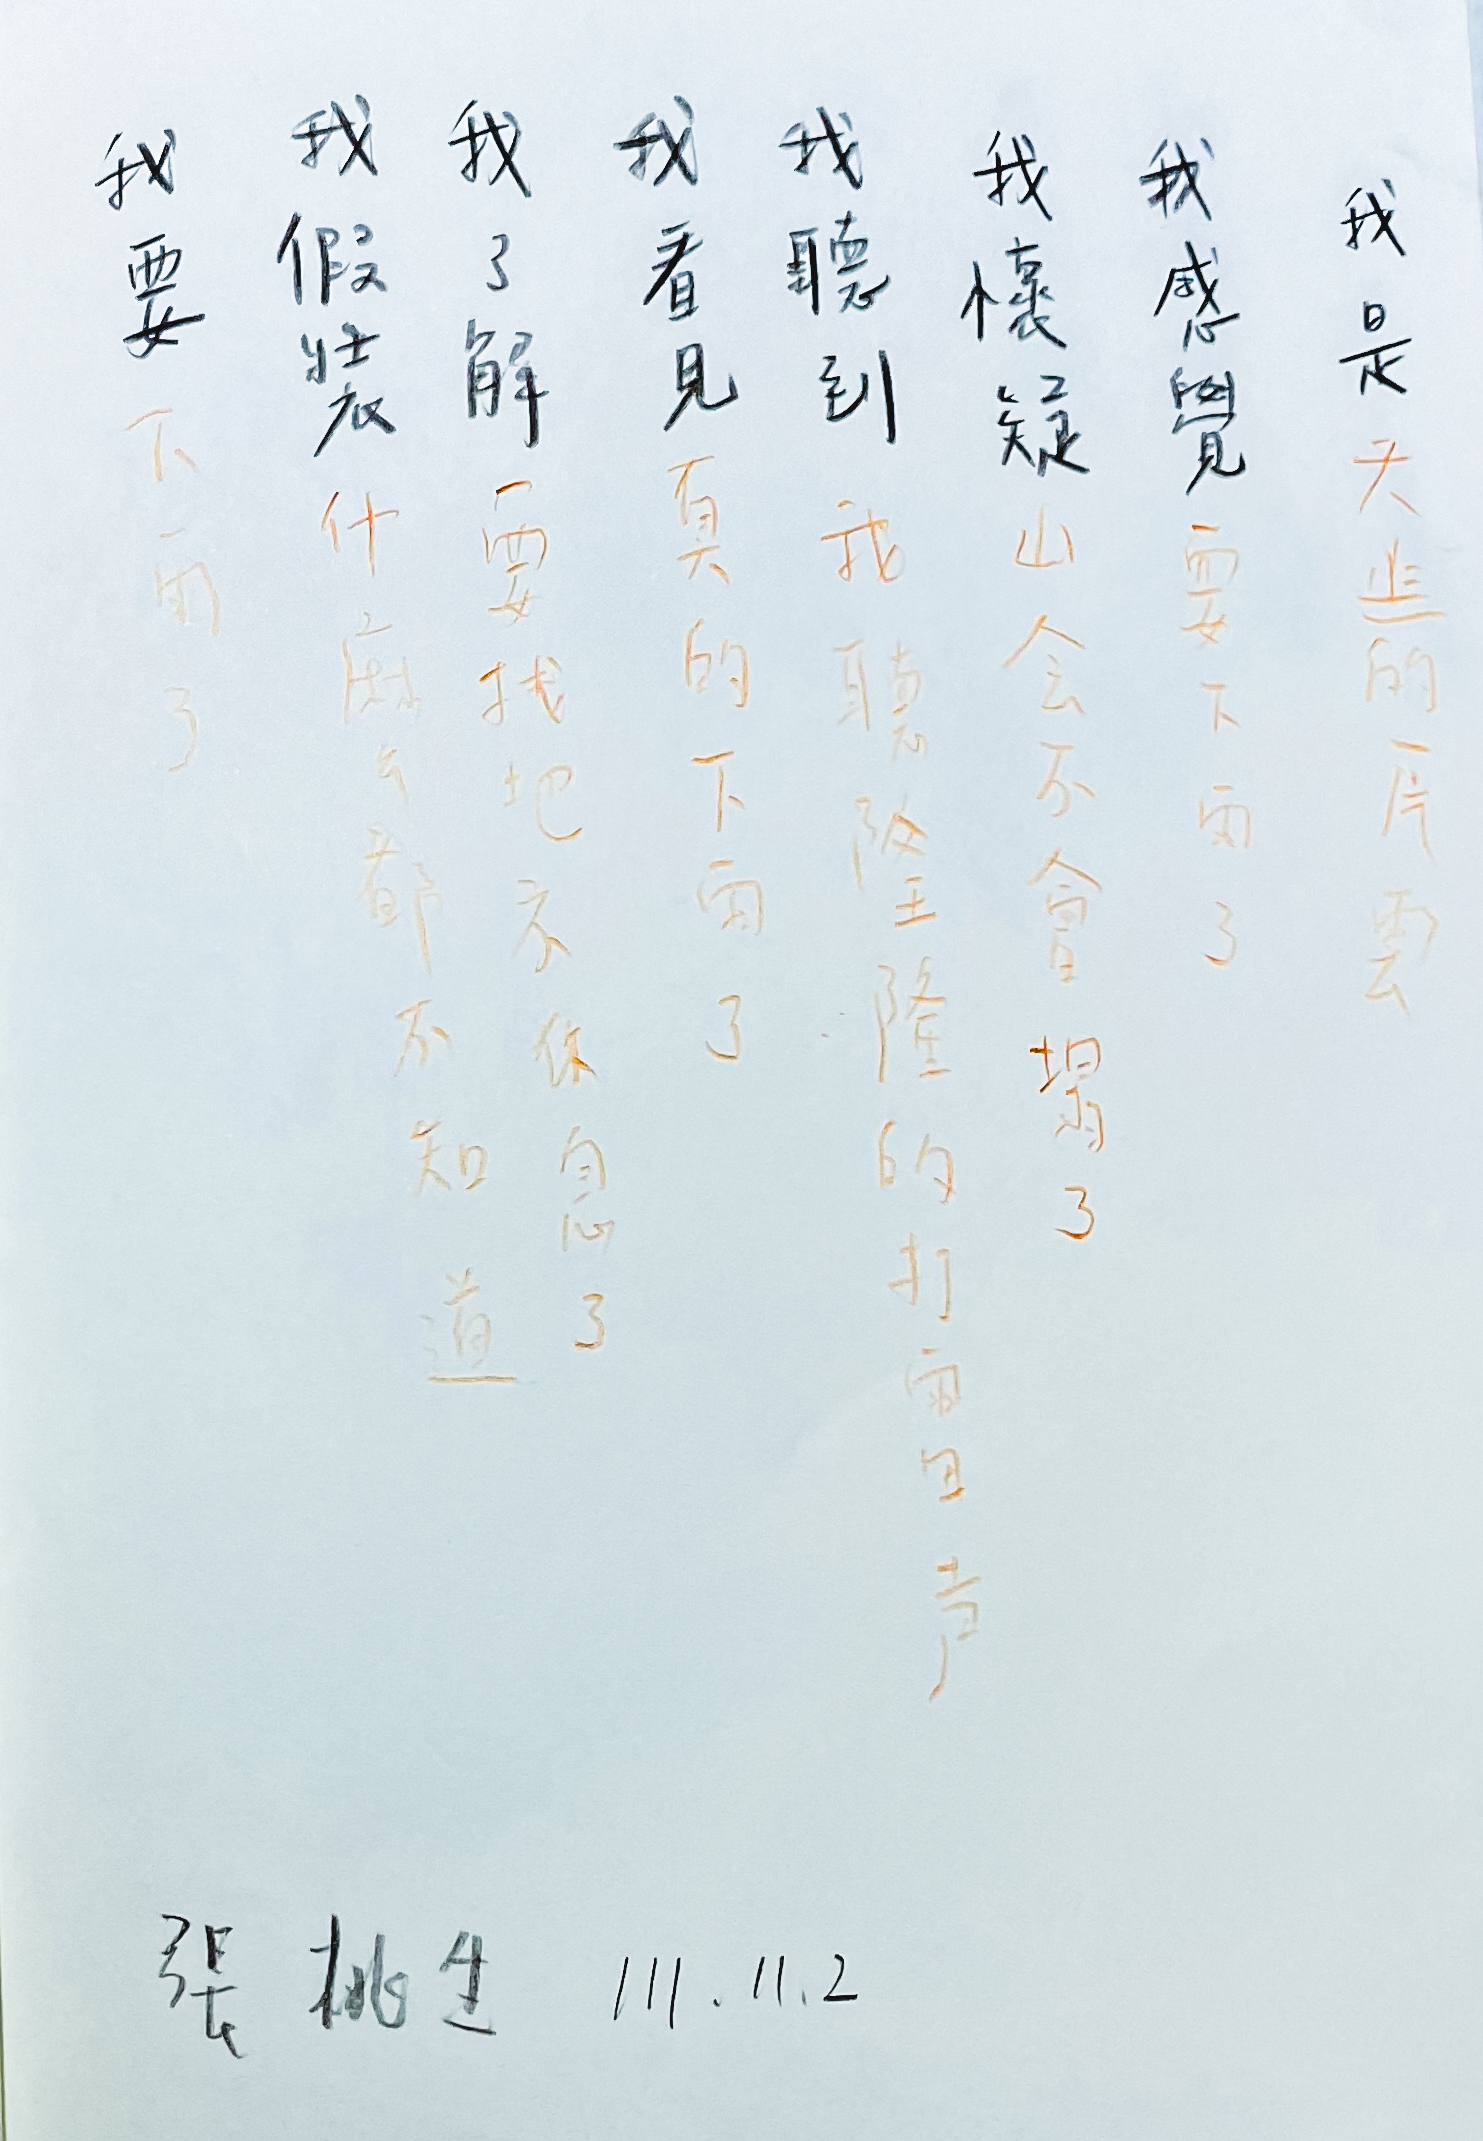 我是天的一片雲
我感覺要下雨了
我懷疑山会不會塌了
我聽到我聽隆隆的打雷声
我看見真的下雨了
我了解要找地方休息了
我假裝什麼都不知道
我要下雨了
張桃生 111.11.2